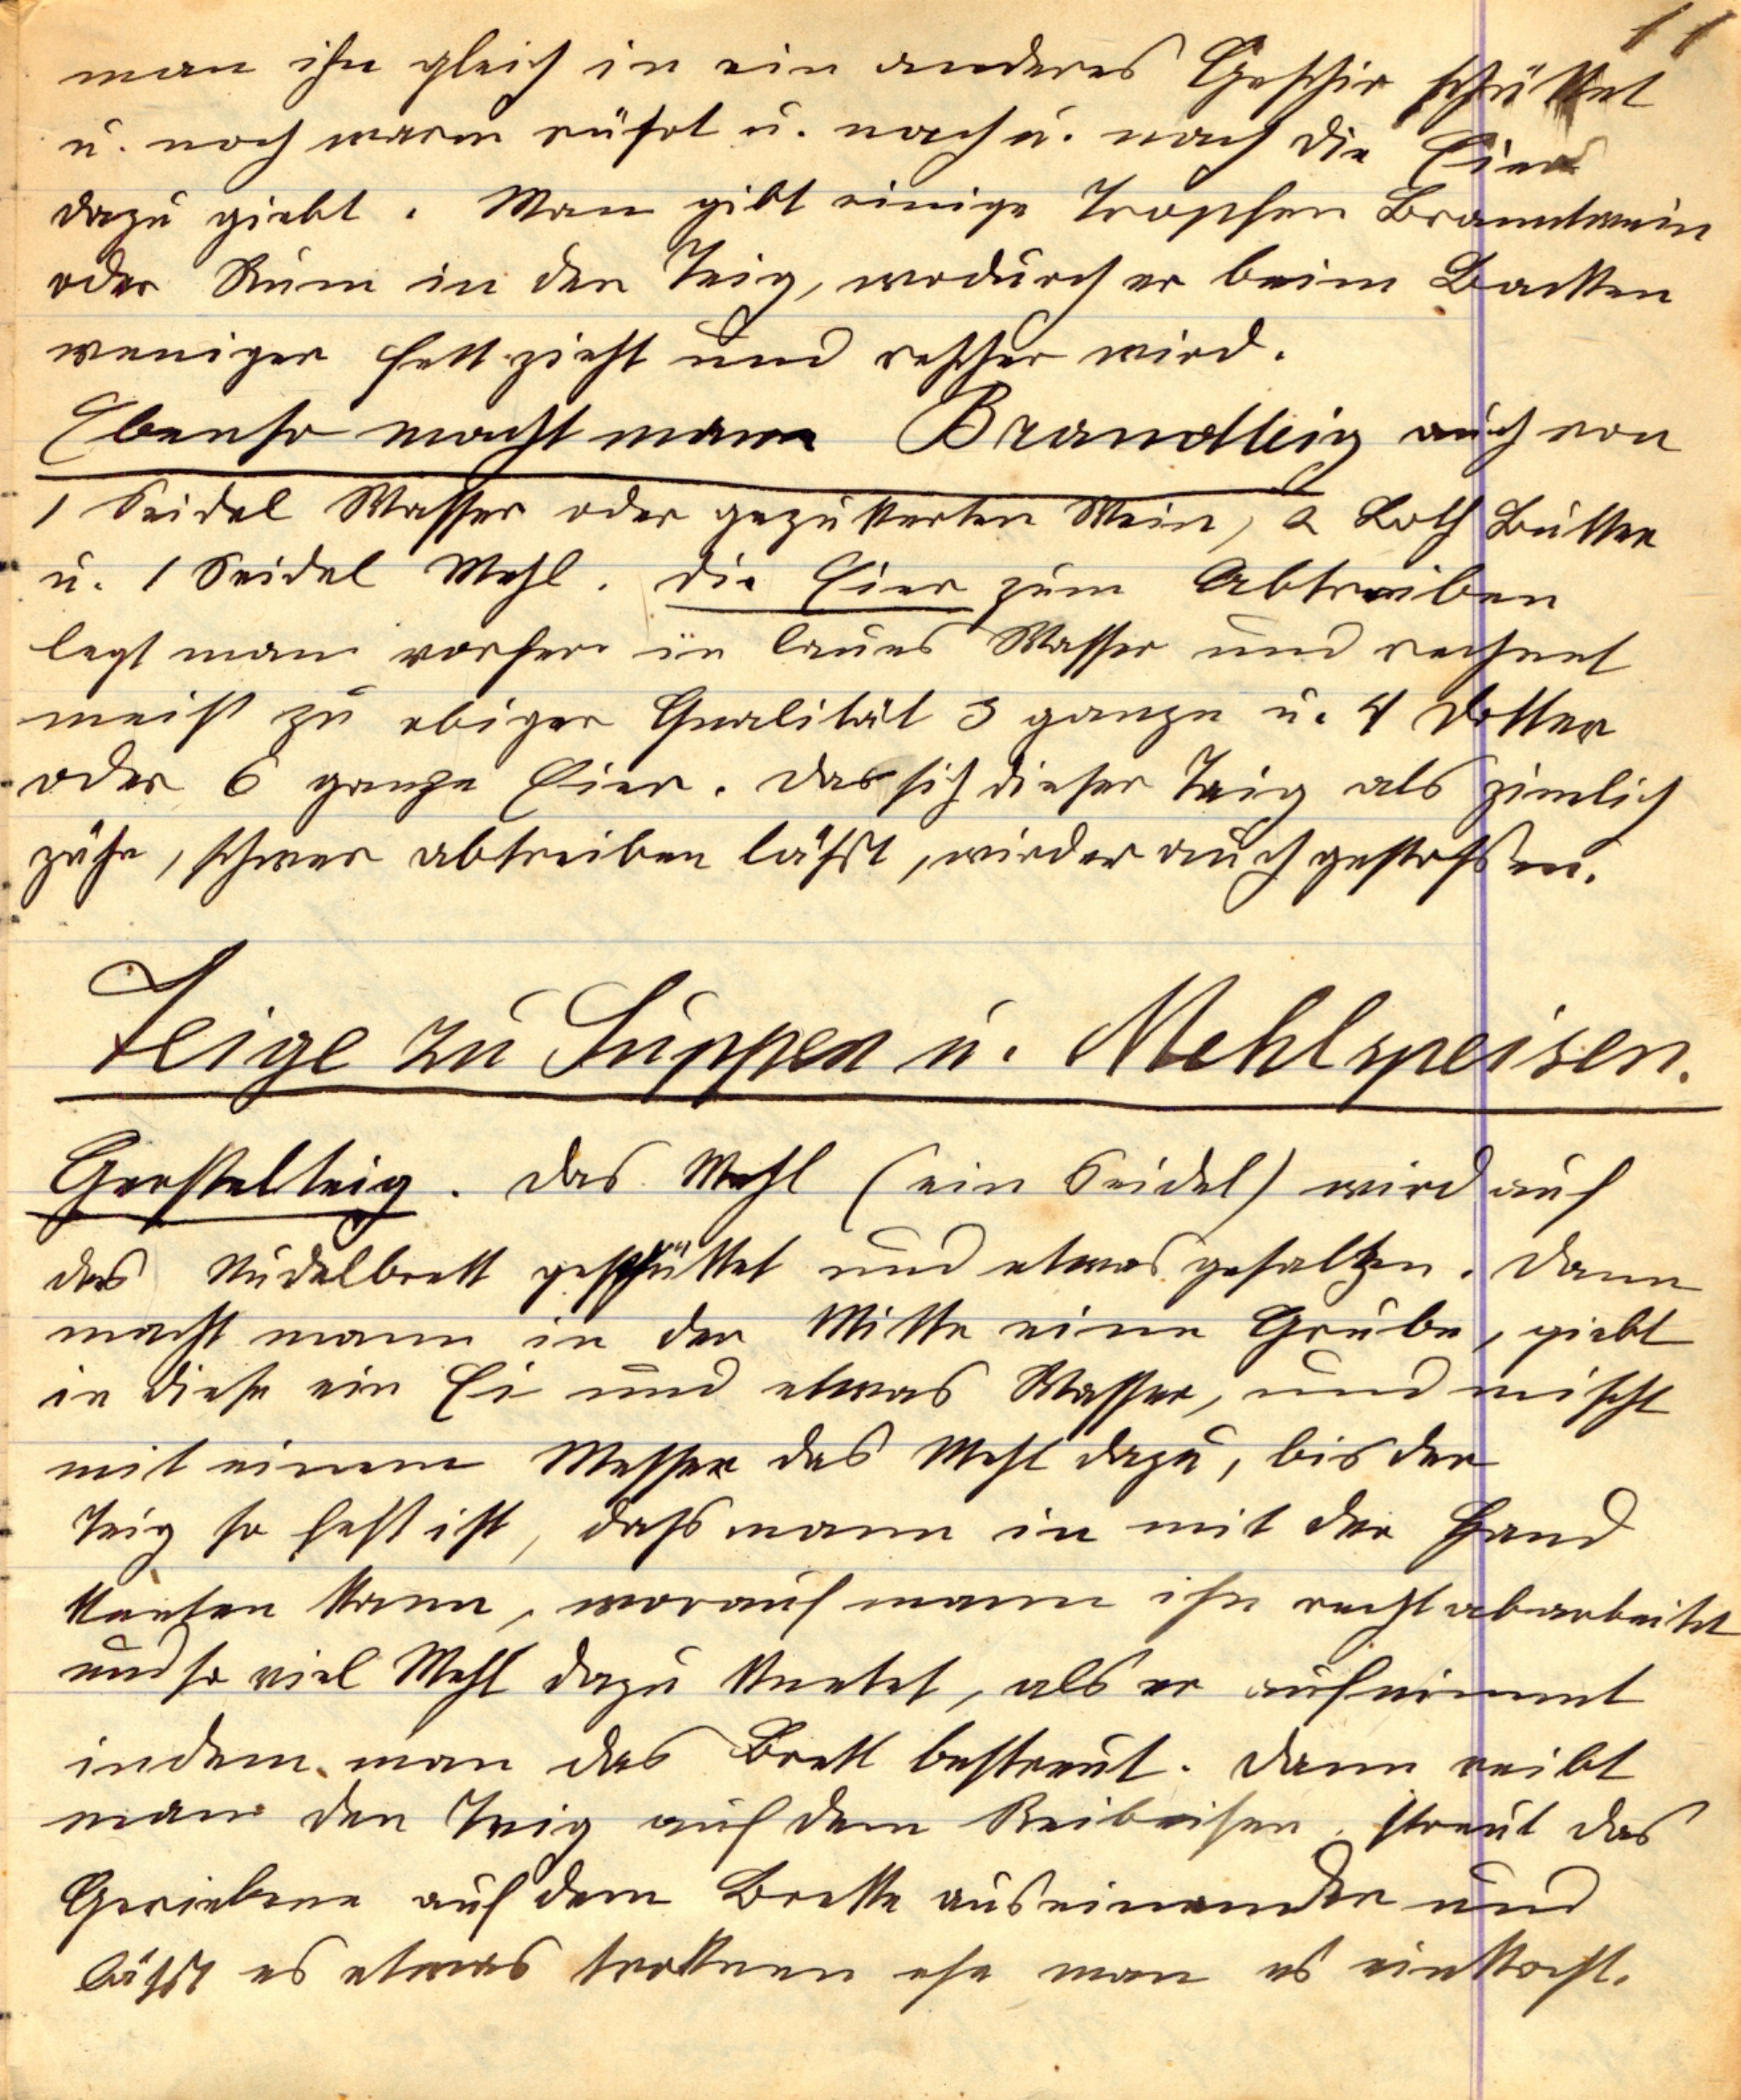 11
man ihn gleich in ein anderes Geschir schüttet
u. noch warm rührt u. nach u. nach die Eier
dazu giebt. Man gibt einige Tropfen Branntwein
oder Rum in den Teig, wodurch er beim Backen
weniger fett zieht und rescher wird.
Ebenso macht mann Brandteig auch von
1 Seidel Wasser oder gezukerten Wein, 2 Loth Butter
u. 1 Seidel Mehl. die Eier zum Abtreiben
legt man vorher in laues Wasser und rechnet
meist zu obiger Qualität 3 ganze u. 4 Dotter
oder 6 ganze Eier. Da sich dieser Teig als zimlich
zähe, schwer abtreiben läßt, wird er auch gestoßen.
Teige zu Suppen u. Mehlspeisen.
Gerstelteig. das Mehl (ein Seidel) wird auf
das Nudelbrett geschüttet und etwas gesaltzen. dann
macht mann in der Mitte eine Grube, giebt
in diese ein Ei und etwas Wasser, und mischt
mit einem Messer das Mehl dazu, bis der
Teig so fest ist, daß mann in mit der Hand
kneten kann, worauf mann ihn recht abarbeitet
und so viel Mehl dazu knetet, als er aufnimmt
indem man das Brett bestreut. dann reibt
man den Teig auf dem Reibeisen, streut das
Geriebene auf dem Brette auseinander und
läßt es etwas troknen ehe man es einkocht.